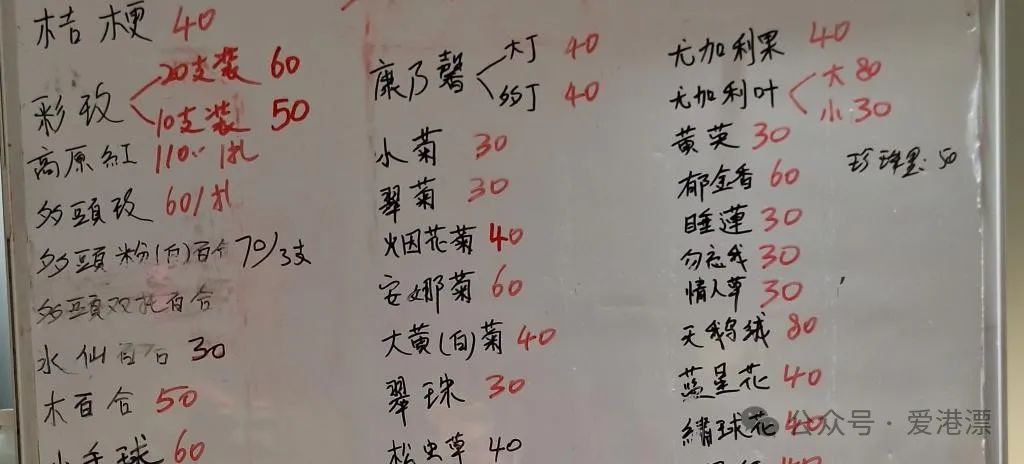 桔梗 40
彩玫 20支装 60
10支装 50
高原紅 110 1扎
多頭玫 60/扎
多頭粉(白)百合 70/3支
多頭双托百合
水仙百合 30
木百合 50
小手球 60
康乃馨 大丁 40
多丁 40
小菊 30
翠菊 30
烟花菊 40
安娜菊 60
大黄(白)菊 40
翠珠 30
松虫草 40
尤加利果 40
尤加利叶 大 80
小 30
黄英 30
郁金香 60
睡蓮 30
勿忘我 30
情人草 30
天鹅绒 80
藍星花 40
繡球花 40
珍珠里: 50
公众号·爱港漂